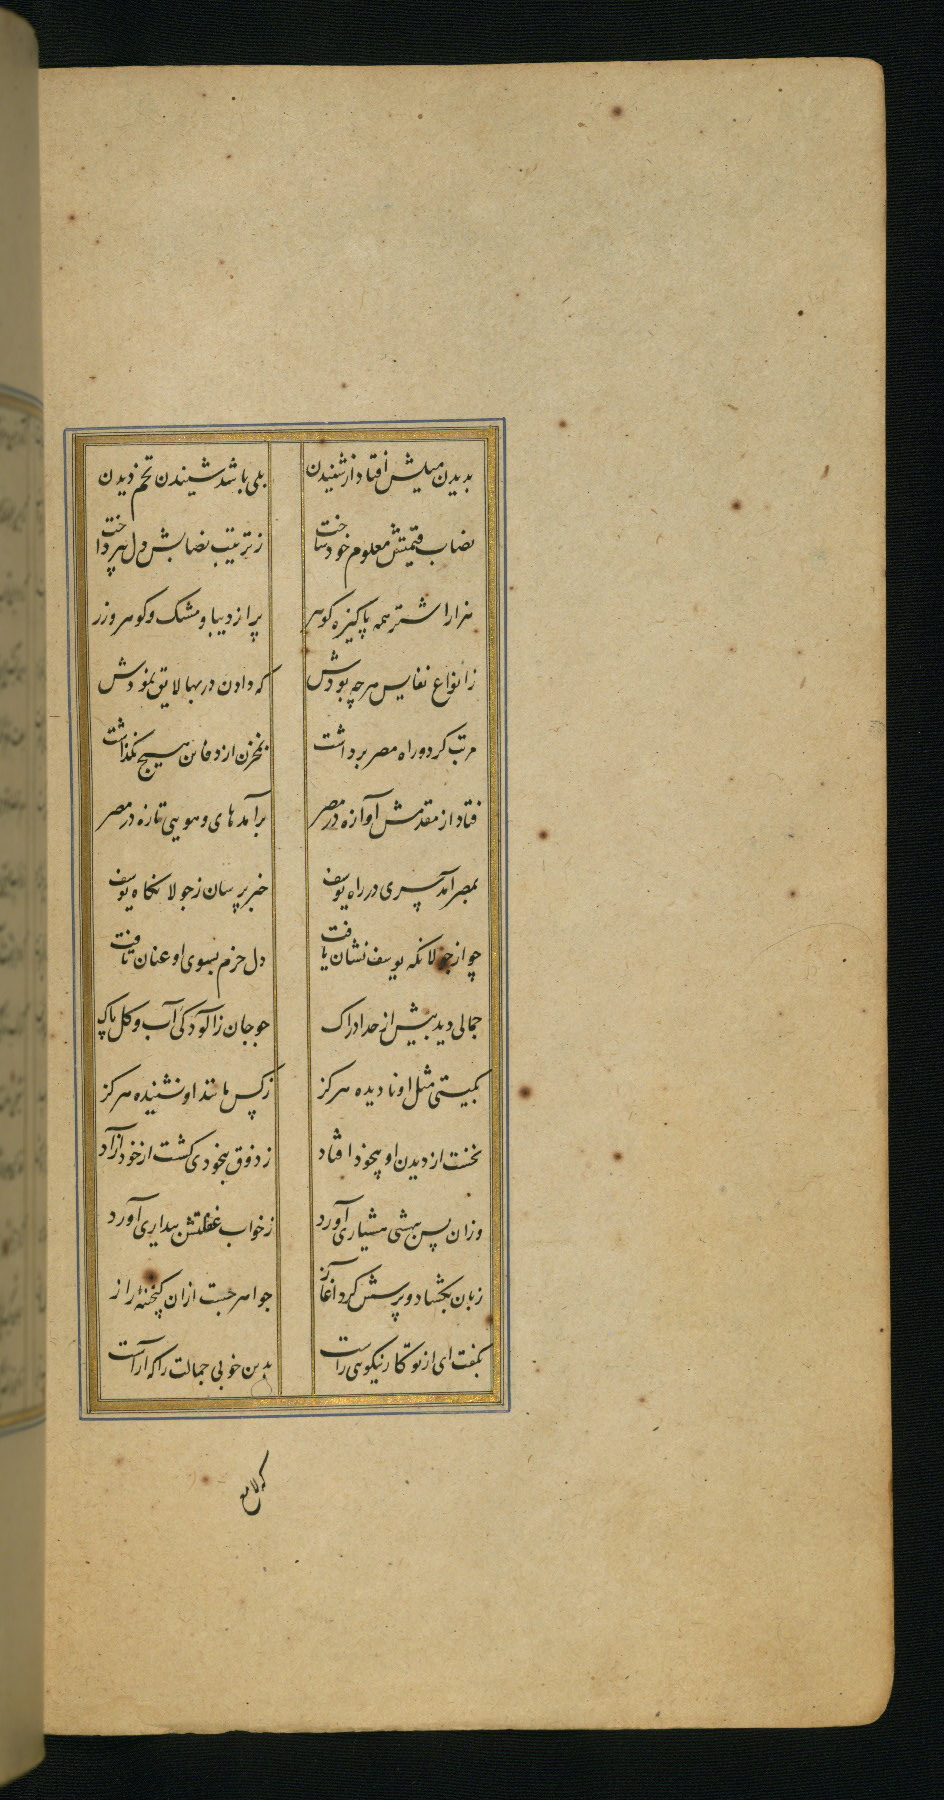 بدیدن میلش افتاد از شنیدن بلی باشد شنیدن تخم دیدن
نصاب قیمتش معلوم خود ساخت ز ترتیب نصابش دل بپرداخت
هزار اشتر همه پاکیزه کوهر پر از دیبا و مشک و کوهر و زر
ز انواع نفایس هرچه بودش که دادن در بها لایق نمودش
مرتب کرد و راه مصر برداشت بمخزن از دفاین هیچ نکذاشت
فتاد از مقدمش آوازه در مصر برآمد های و هویی تازه در مصر
بمصر آمد پسری در راه یوسف خبر پرسان ز جولانکاه یوسف
چو از جولانکه یوسف نشان یافت دل خرم بسوی او عنان تافت
جمالی دید بیش از حد ادراک چو جان ز آلودکی آب و کل پاک
بکیتی مثل او نادیده هرکز ز کس مانند او نشنیده هرکز
نخست از دیدن او بیخود افتاد ز ذوق بیخودی کشت از خود آزاد
وزان پس بیهشی هشیاری آورد ز خواب غفلتش بیداری آورد
زبان بکشاد و پرسش کرد آغاز جواهر جست ازان کنجینه راز
بکفت ای از تو کار نیکویی راست بدین خوبی جمالت را که آراست
که لامع